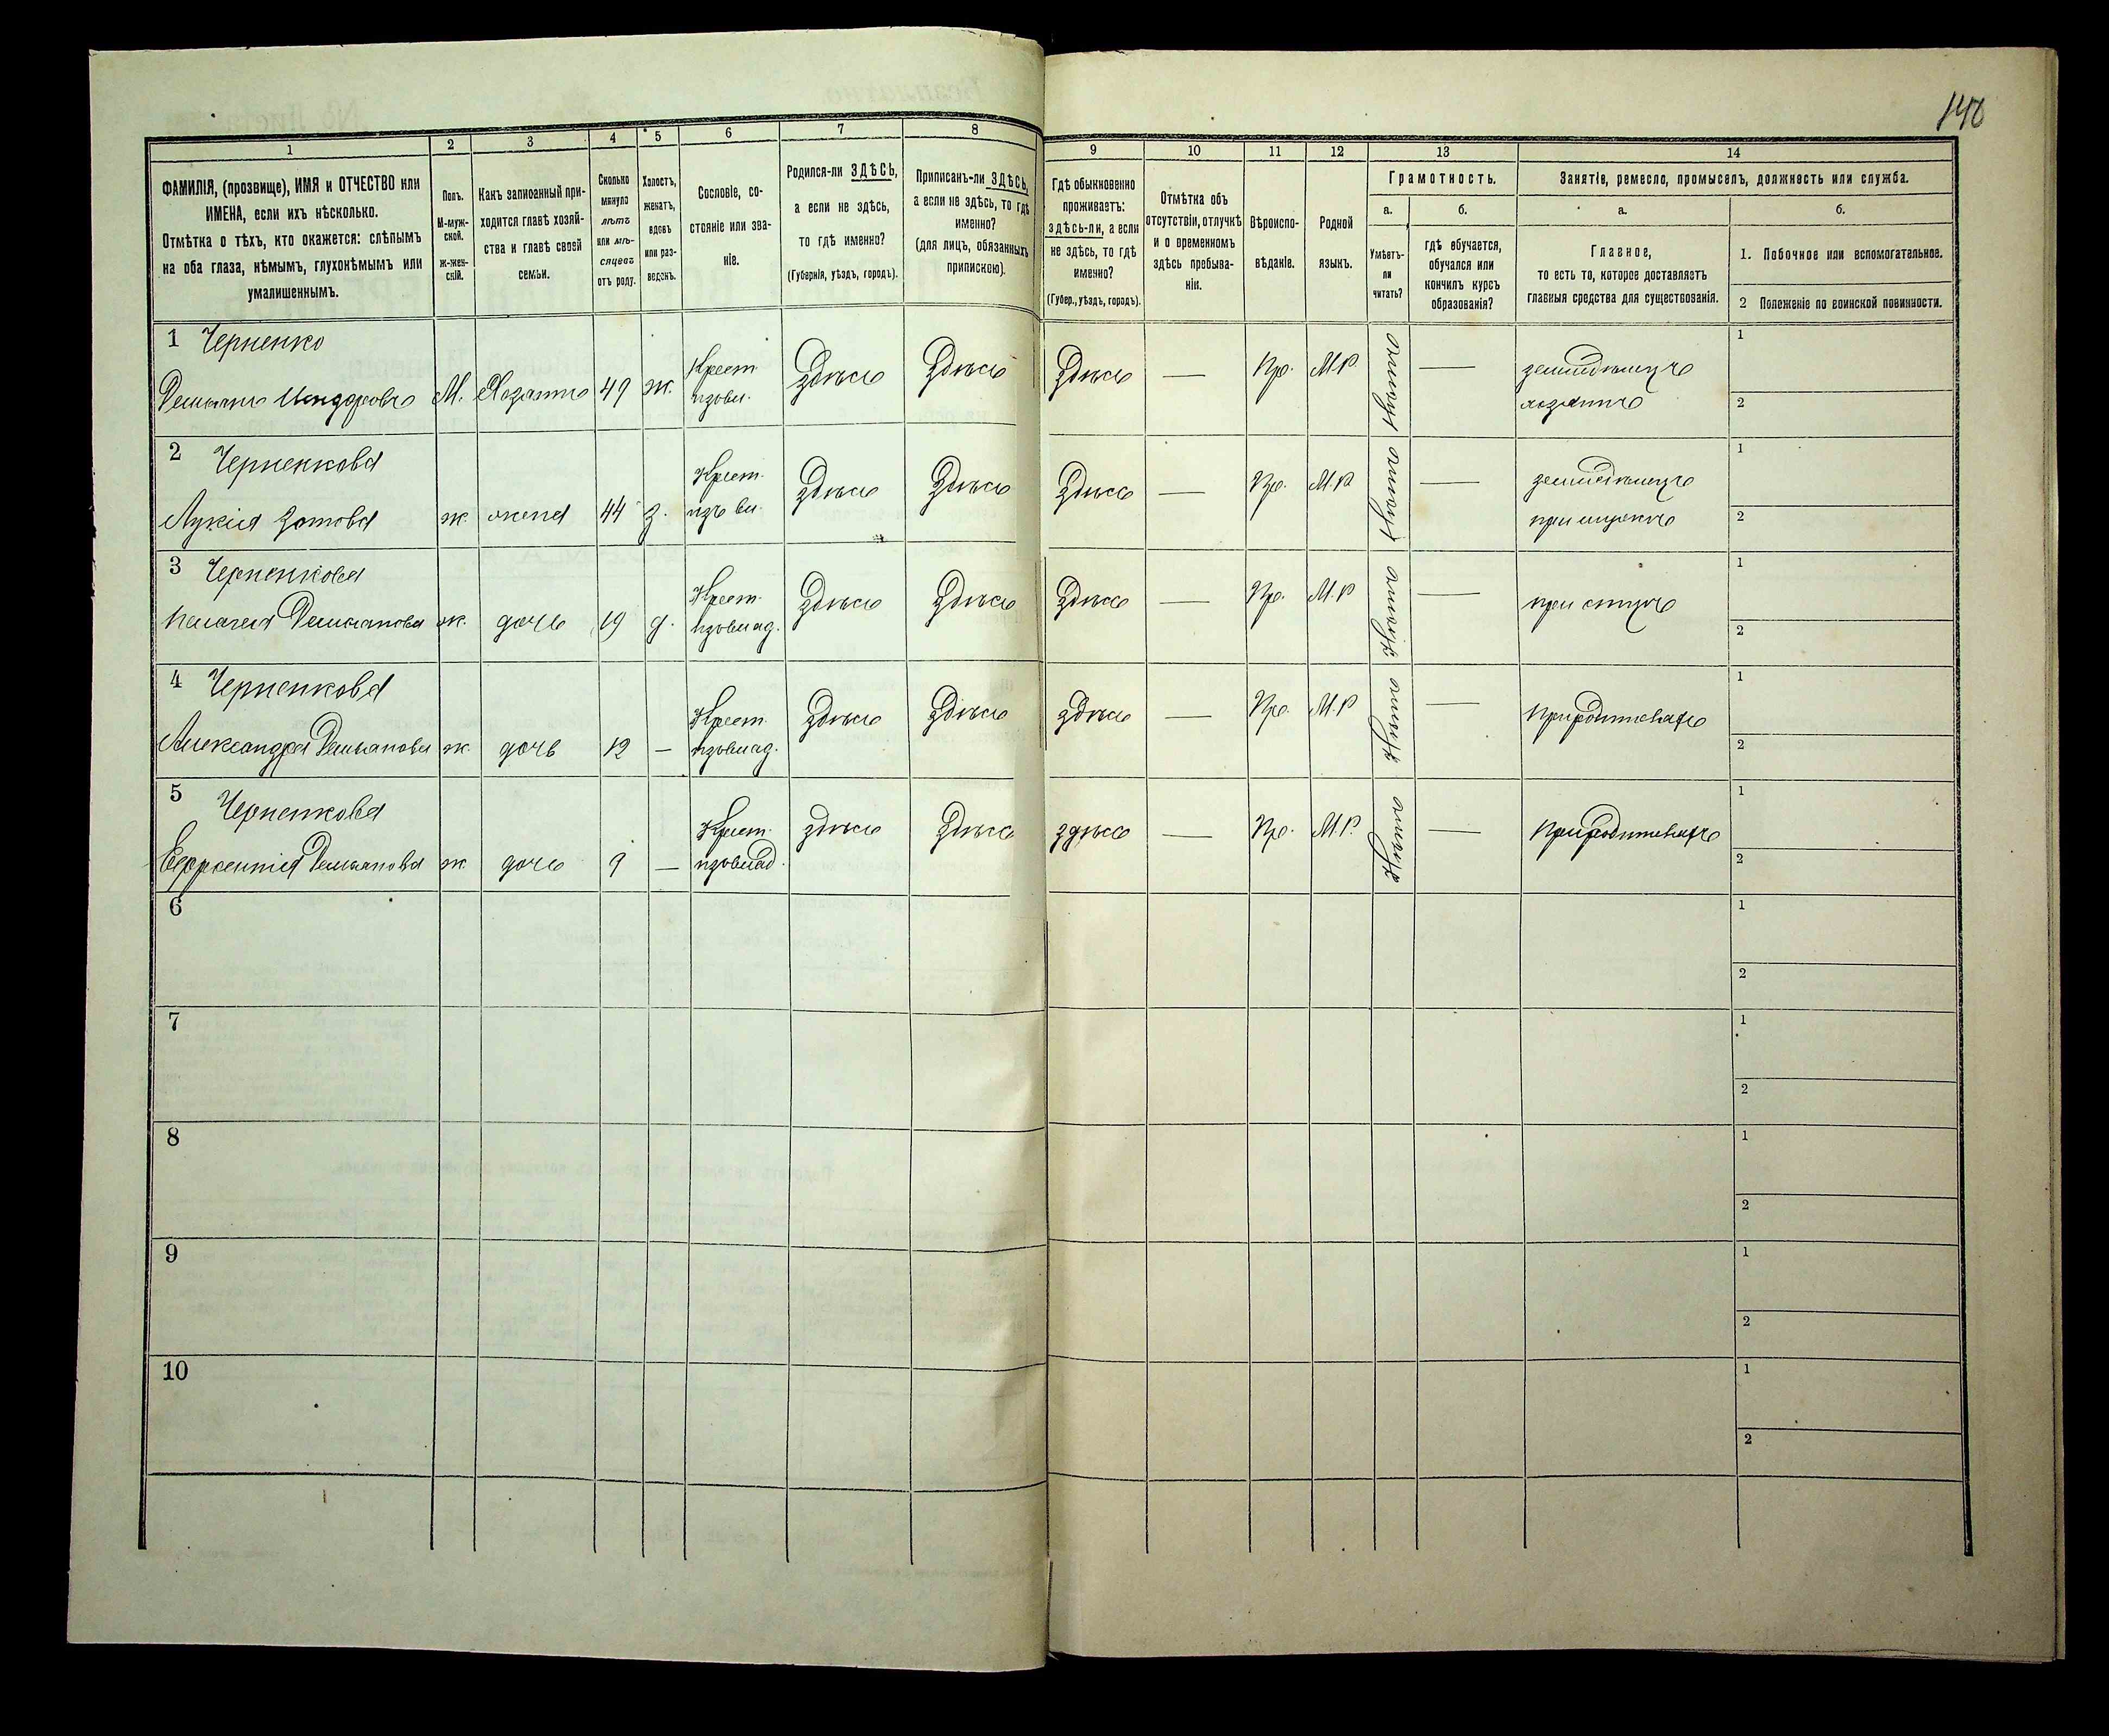 140
1
2
3
4
5
6
7
8
9
10
11
12
13
14
ФАМИЛІЯ, (прозвище), ИМЯ и ОТЧЕСТВО или
ИМЕНА, если ихъ нѣсколько.
Отмѣтка о тѣхъ, кто окажется: слѣпымъ
на оба глаза, нѣмымъ, глухонѣмымъ или
умалишеннымъ.
Полъ.
М-муж-
ской.
Ж-жен-
скій.
Какъ записанный при-
ходится главѣ хозяй-
ства и главѣ своей
семьи.
Сколько
минуло
лѣтъ
или мѣ-
сяцевъ
отъ роду.
Холостъ,
женатъ,
вдовъ
или раз-
веденъ.
Сословіе, со-
стояніе или зва-
ніе.
Родился-ли ЗДѢСЬ,
а если не здѣсь,
то гдѣ именно?
(Губернія, уѣздъ, городъ).
Приписанъ-ли ЗДѢСЬ,
а если не здѣсь, то гдѣ
именно?
(для лицъ, обязанныхъ
припискою).
Гдѣ обыкновенно
проживаетъ:
здѣсь-ли, а если
не здѣсь, то гдѣ
именно?
(Губер., уѣздъ, городъ).
Отмѣтка объ
отсутствіи, отлучкѣ
и о временномъ
здѣсь пребыва-
ніи.
Вѣроиспо-
вѣданіе.
Родной
языкъ.
Грамотность.
а.
Умѣетъ-
ли
читать?
б.
гдѣ обучается,
обучался или
кончилъ курсъ
образованія?
Занятіе, ремесло, промыселъ, должность или служба.
а.
Главное,
то есть то, которое доставляетъ
главныя средства для существованія.
б.
1. Побочное или вспомогательное.
2 Положеніе по воинской повинности.
1 Черненко
Демьянъ Исидоровъ М. Хозяинъ 49 ж. Крест. изъ вл. Здѣсь Здѣсь Здѣсь — Пр. М.Р. — земледѣлецъ
хозяинъ
1
2
2 Черненкова
Лукія Зотова ж. жена 44 з. Крест. изъ вл. Здѣсь Здѣсь Здѣсь — Пр. М.Р — земледѣлецъ
при мужѣ
1
2
3 Черненкова
Пелагея Демьянова ж. дочь 19 д. Крест. изъ влад. Здѣсь Здѣсь Здѣсь — Пр. М.Р —
1
2
4 Черненкова
Александра Демьянова ж. дочь 12 — Крест. изъ влад. Здѣсь Здѣсь здѣсь — Пр. М.Р — при родителяхъ
1
2
5 Черненкова
Демьянова ж. дочь 9 — Крест. изъ влад. здѣсь Здѣсь здѣсь — Пр. М.Р. — при родителяхъ
1
2
6
1
2
7
1
2
8
1
2
9
1
2
10
1
2